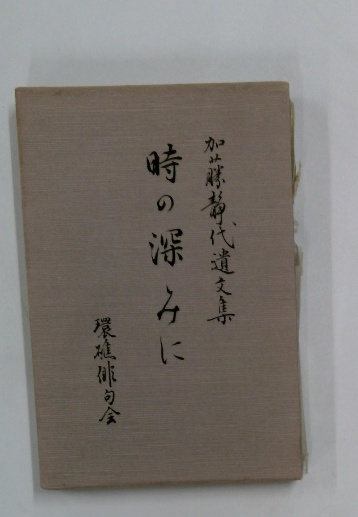 加藤静代遺文集
時の深みに
環礁俳句会